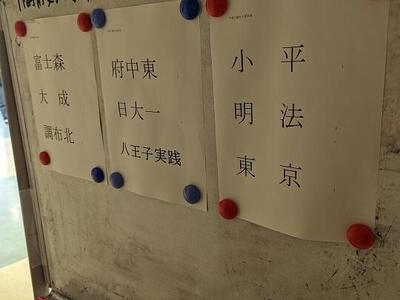 富士森
大成
調布北
府中東
日大一
八王子実践
小平
明法
東京